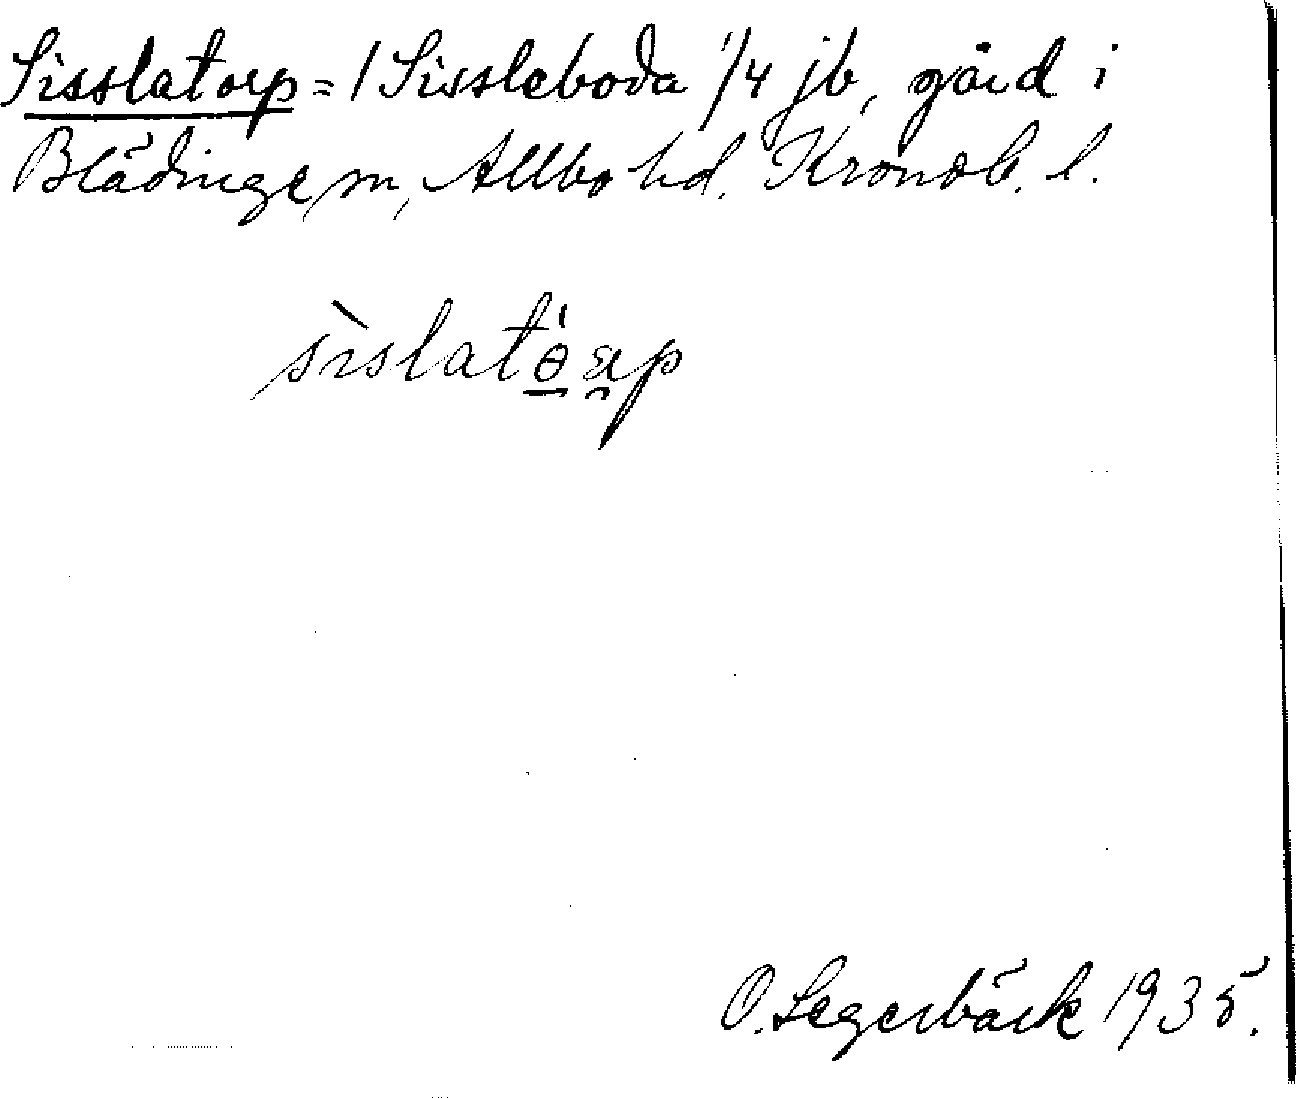 Sisslatorp = / Sissleboda 1/4 jb, gård i
Blädinge sn, Allbo hd. Kronob. l.
sìslatò̱ ra̯p
O. Segerbäck 1935.